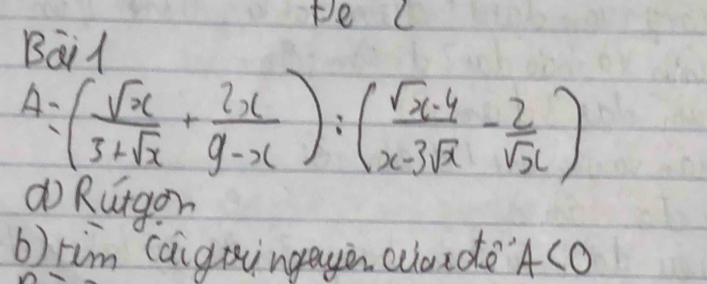 Đề 2
Bài 1
A = (√x/(3+√x) + 2x/(9-x)) : ((√x-4)/(x-3√x) - 2/√x)
a) Rút gọn
b) tìm các giá trị nguyên của x để A<0